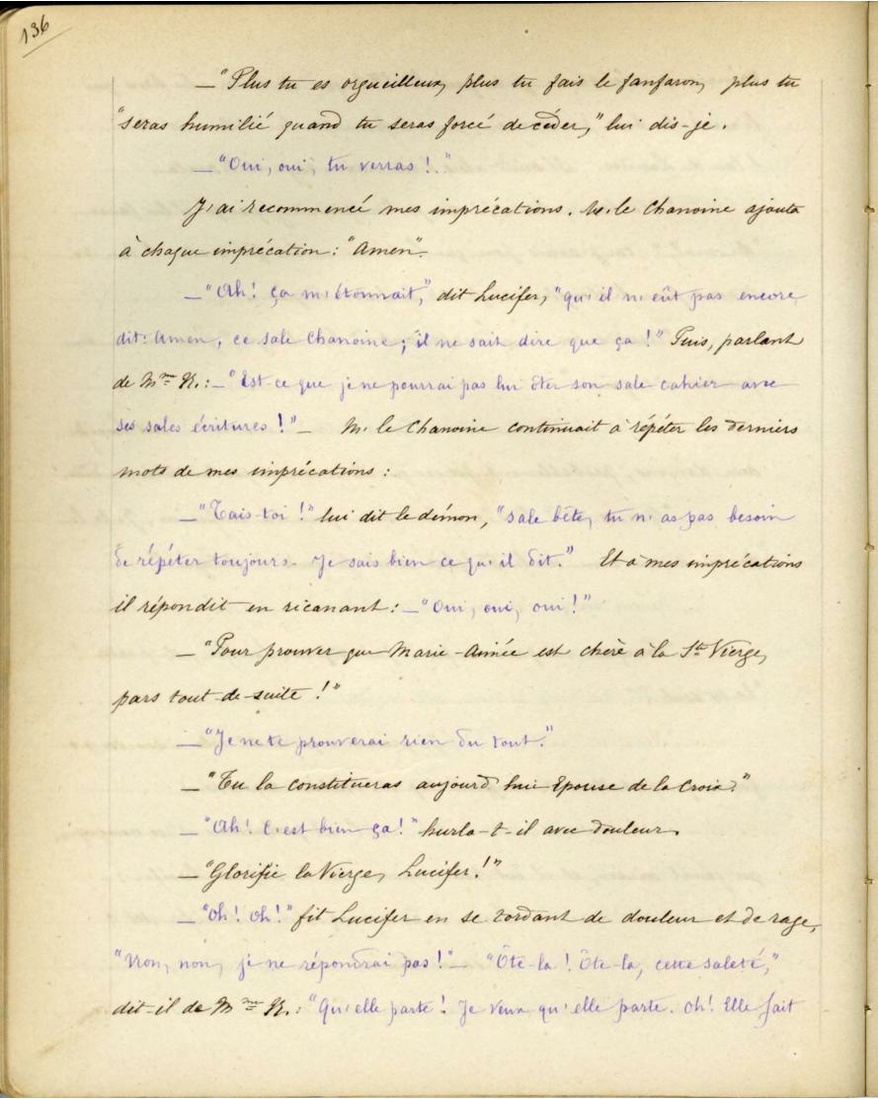 136
—"Plus tu es orgueilleux, plus tu fais le fanfaron, plus tu
"seras humilié quand tu seras forcé de céder," lui dis-je.
—"Oui, oui, tu verras!"
J'ai recommencé mes imprécations. M. le Chanoine ajouta
à chaque imprécation: "Amen".
—"Ah! ça m'étonnait," dit Lucifer, "qu'il n'eût pas encore
dit: Amen, ce sale Chanoine; il ne sait dire que ça!" Puis, parlant
de Mme K.: —"Est-ce que je ne pourrai pas lui ôter son sale cahier avec
ses sales écritures!"— M. le Chanoine continuait à répéter les derniers
mots de mes imprécations:
—"Tais-toi!" lui dit le démon, "sale bête, tu n'as pas besoin
de répéter toujours. Je sais bien ce qu'il dit." Et à mes imprécations
il répondit en ricanant: —"Oui, oui, oui!"
—"Pour prouver que Marie-Aimée est chère à la Ste Vierge,
pars tout-de-suite!"
—"Je ne te prouverai rien du tout."
—"Tu la constitueras aujourd'hui Epouse de la Croix."
—"Ah! C'est bien ça!" hurla-t-il avec douleur.
—"Glorifie la Vierge, Lucifer!"
—"Oh! Oh!" fit Lucifer en se tordant de douleur et de rage,
"Non, non, je ne répondrai pas!"— "Ôte-la! Ôte-la, cette saleté,"
dit-il de Mme K.: "Qu'elle parte! Je veux qu'elle parte. Oh! Elle fait